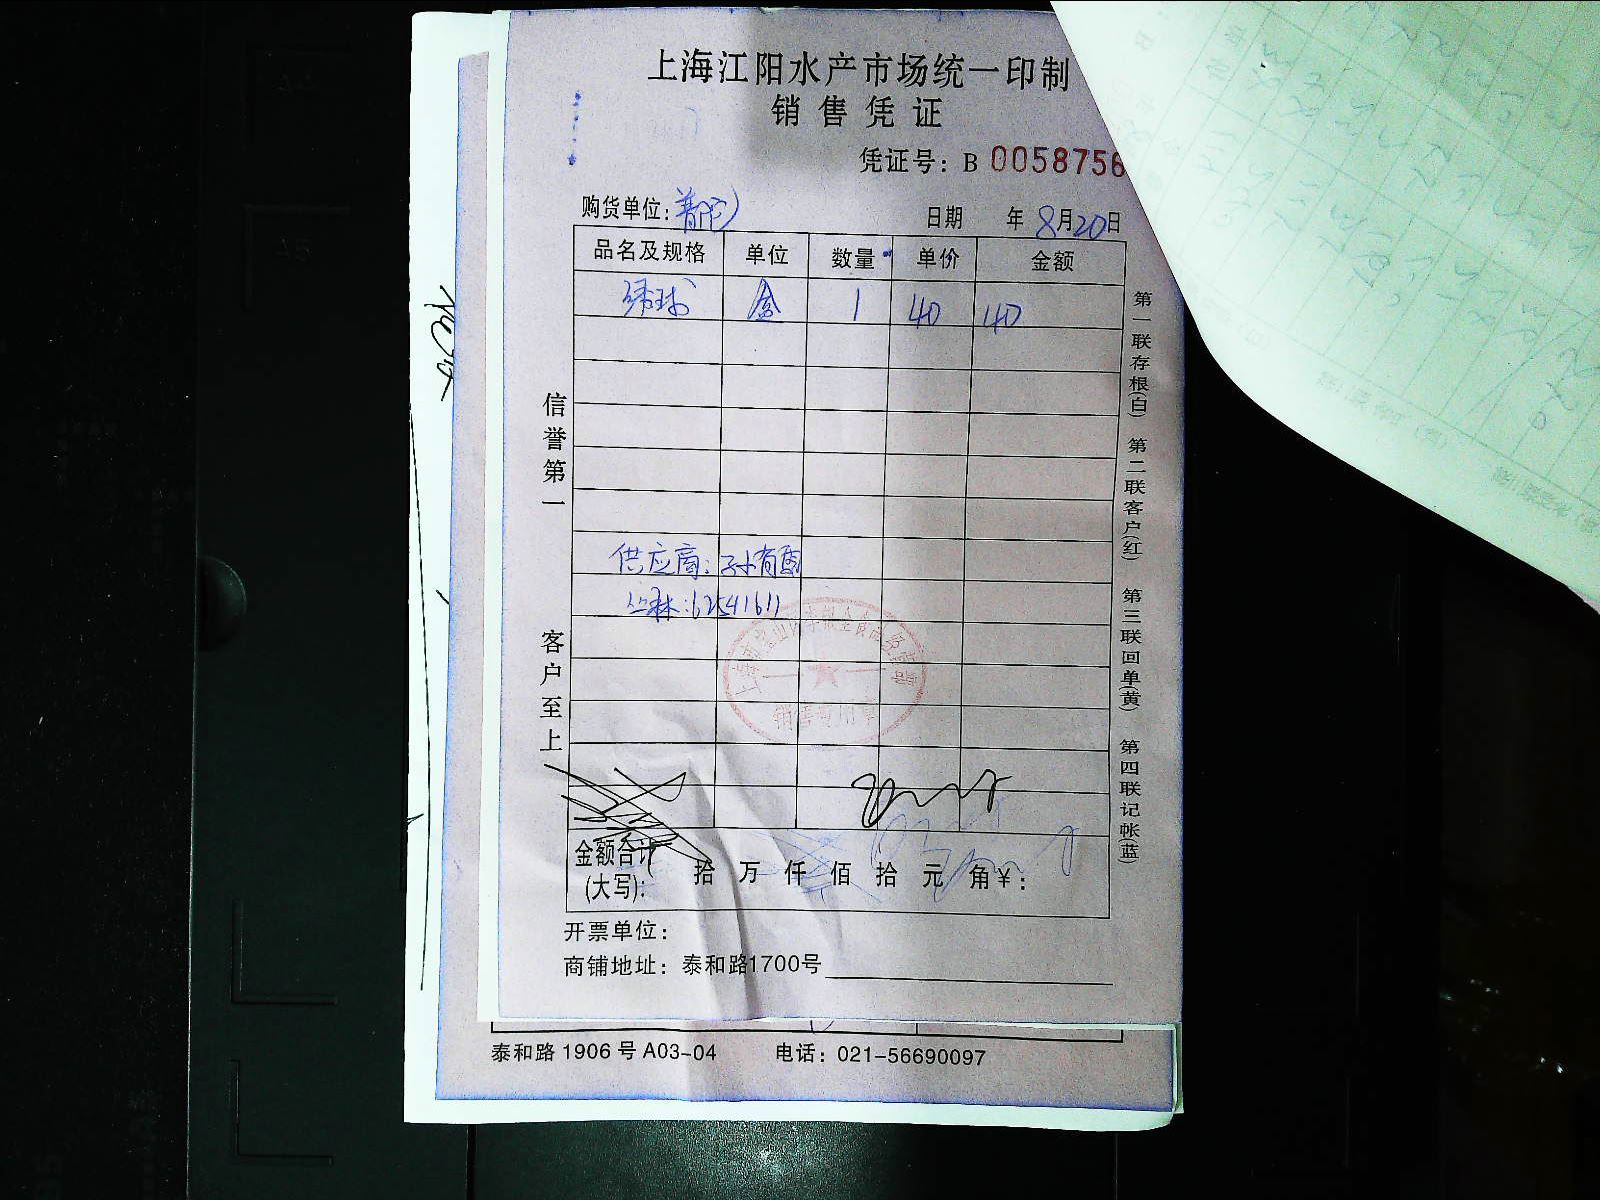 上海江阳水产市场统一印制
销售凭证
凭证号：B 0058756
购货单位：普陀
日期 年8月20日
品名及规格 单位 数量 单价 金额
绣球 盒 1 40 40
供应商：孙有酉
丛林：62541611
销售专用章
信誉第一
客户至上
第一联存根(白) 第二联客户(红) 第三联回单(黄) 第四联记帐(蓝)
金额合计(大写)： 拾 万 仟 佰 拾 元 角 ¥：
开票单位：
商铺地址：泰和路1700号
泰和路1906号A03-04 电话：021-56690097